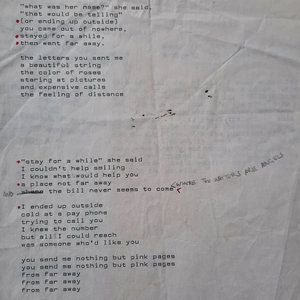 "what was her name?" she said,
"that would be telling"
(or ending up outside)
you came out of nowhere,
stayed for a while,
then went far away.
the letters you sent me
a beautiful string
the color of roses
staring at pictures
and expensive calls
the feeling of distance
"stay for a while" she said
I couldn't help smiling
I know what would help you
a place not far away
AND where the bill never seems to come (WHERE THE WATERS ARE
I ended up outside
cold at a pay phone
trying to call you
I knew the number
but all I could reach
was someone who'd like you
you send me nothing but pink pages
you send me nothing but pink pages
from far away
from far away
from far away